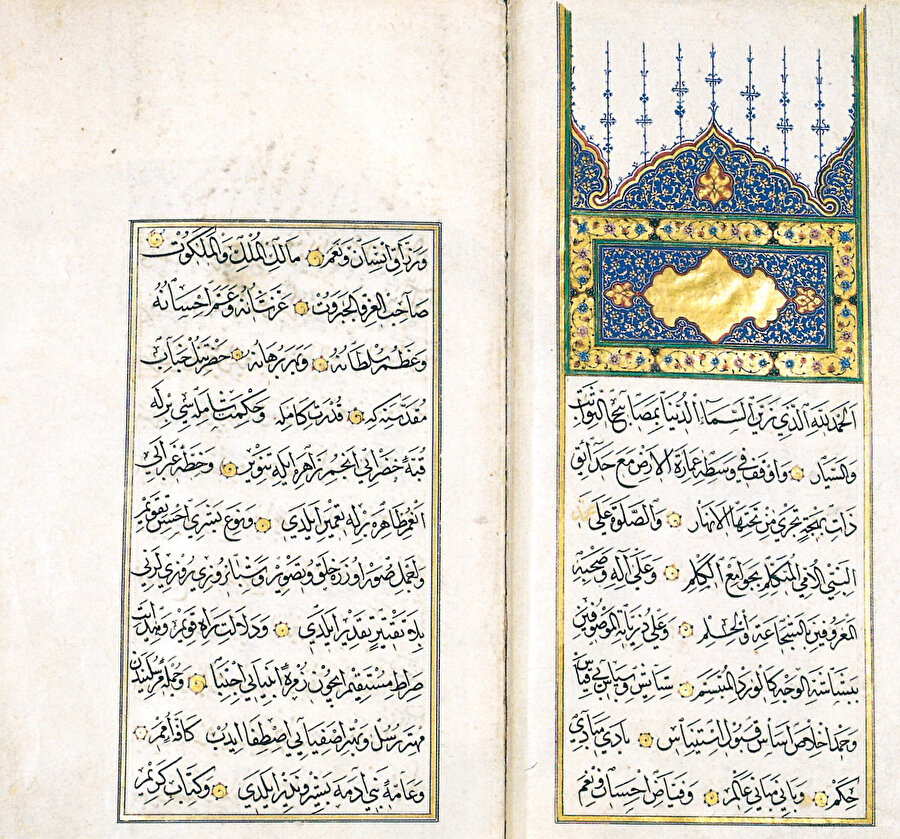 الحمد لله الذي زين السماء الدنيا بمصابيح الثوابت
والسيار واوقف في وسطه عمارة الارض مع حدائق
ذات بهجة تجري من تحتها الانهار والصلوة على
النبي الامي المتكلم بجوامع الكلم وعلى آله وصحبه
المعروفين بالشجاعة والحلم وعلى ذرياته الموصوفين
ببشاشة الوجه كالورد المتبسم ستايش وسپاس بي قياس
وحمد اخلاص اساس قبول استيناس بادئ مبادي
حكم وباني مباني عالم وفياض احسان
ورزاق انسان ونعم مالك الملك والملكوت
صاحب العز والجبروت عز شانه وعم احسانه
وعظم سلطانه وبهر برهانه حضرتل جناب
مقدسنه كه قدرت كامله وحكمت شامله سي برله
قبة خضرائي انجم زاهره ايله تنوير وخطة غبرائي
برله تعمير ايلدي ونوع بشري احسن تقويم
صور اوزره خلق وتصوير وشبانروزي روزيلرني
بلا تقتير تقدير ايلدي ودلالت راه قويم وهدايت
صراط مستقيم ايچون زمرۀ انبيائي اجتبا وجمله مرسليندن
مهتر رسل وبهتر اصفيائي اصطفا ايدوب كافۀ امم
وعامۀ بني آدمه بشير ونذير ايلدي وكتاب كريم